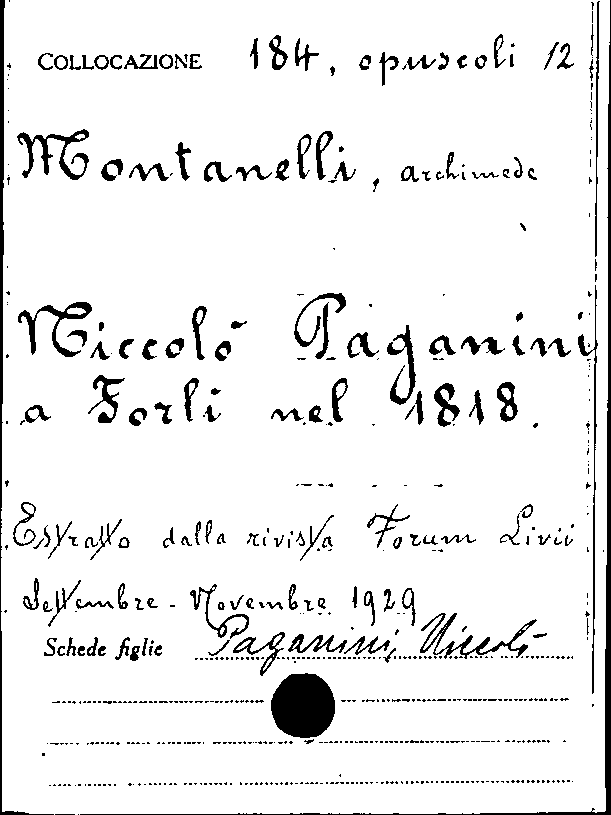 COLLOCAZIONE 184, opuscoli 12
Montanelli, archimede
Niccolò Paganini
a Forlì nel 1818.
Estratto dalla rivista Forum Livii
Settembre - Novembre 1929
Schede figlie Paganini, Niccolò